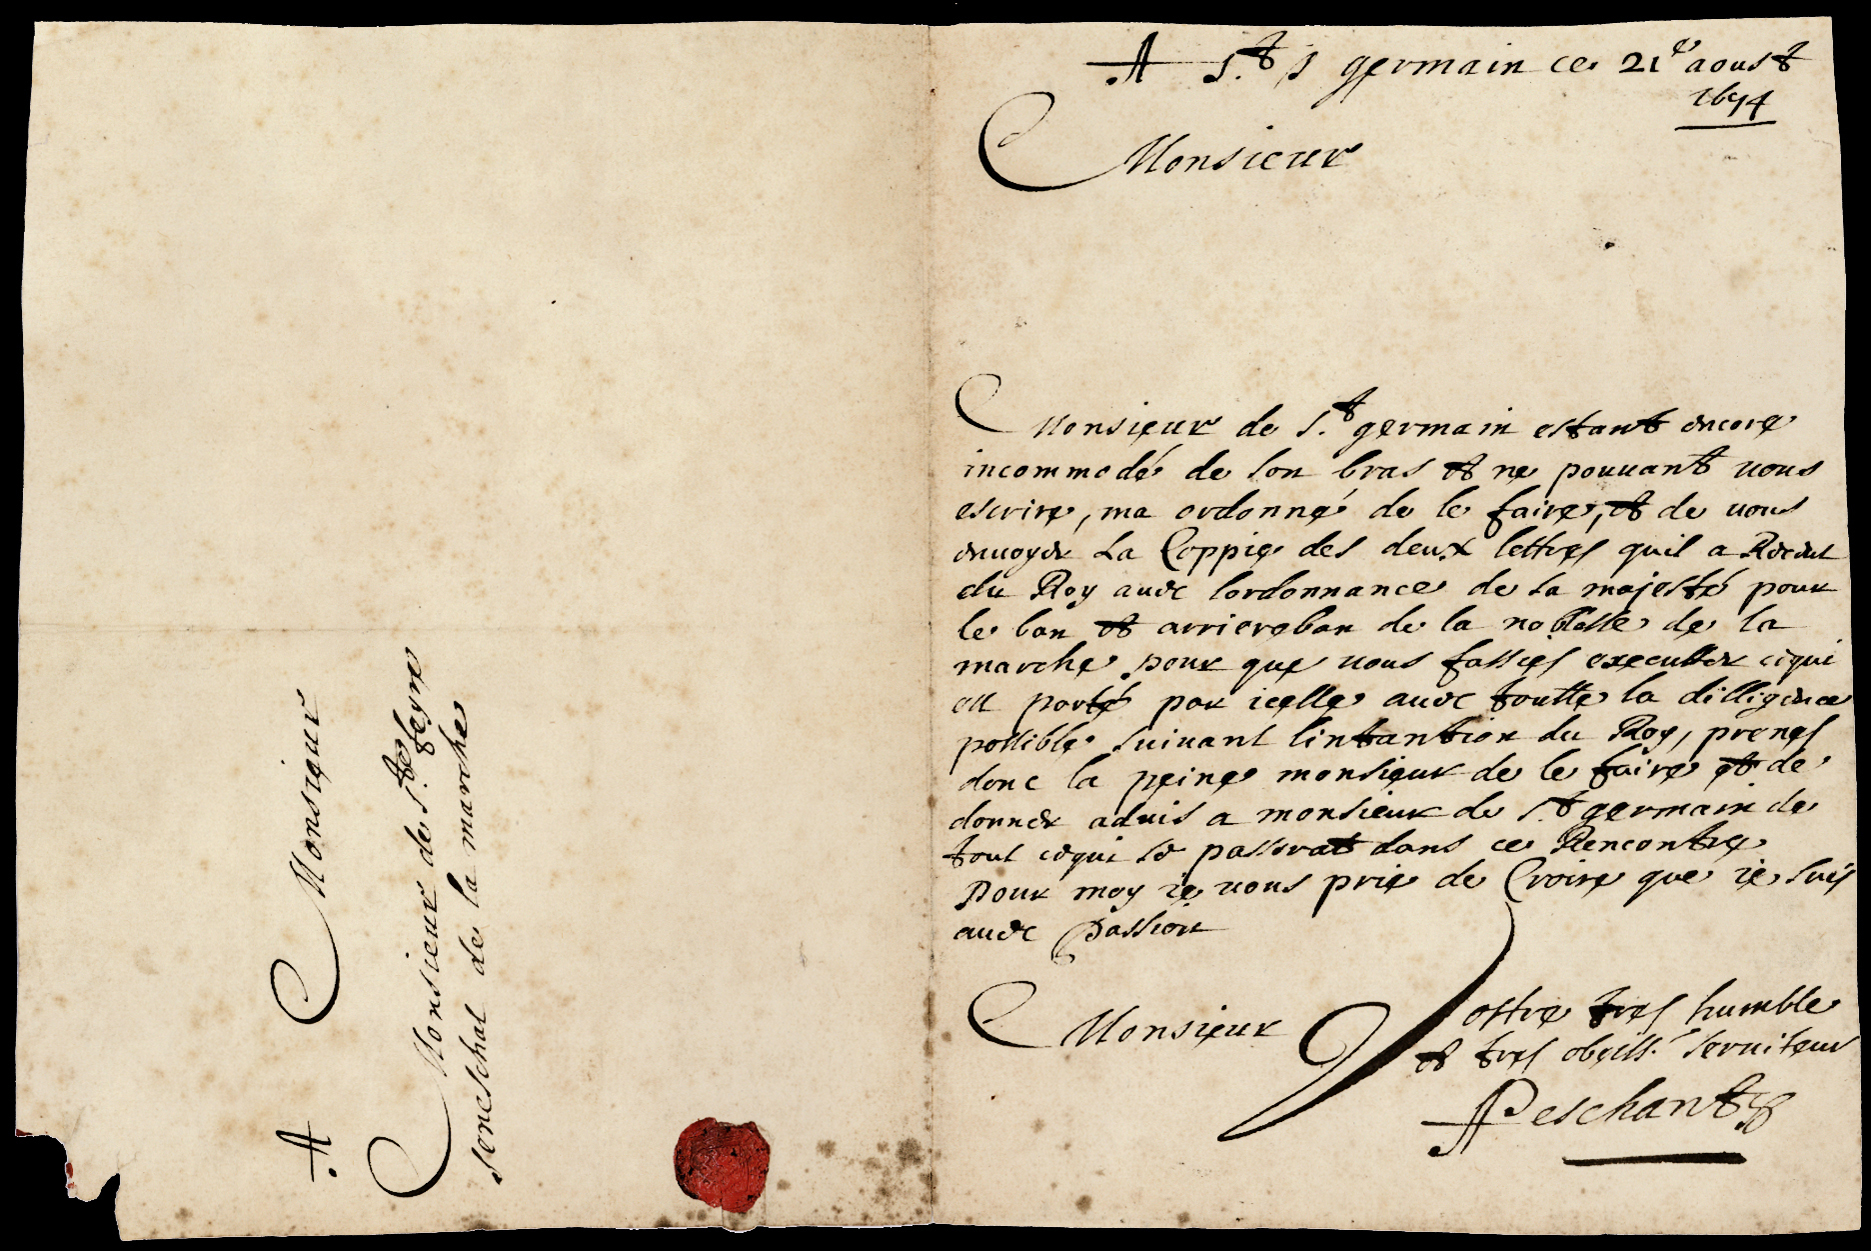 A S.t germain ce 21e aoust
1674
Monsieur
Monsieur de S.t germain estant encore
incommodé de son bras et ne pouuant vous
escrire, ma ordonné de le faire, et de vous
enuoyer La Coppie des deux lettres quil a Receut
du Roy auec lordonnance de sa majesté pour
le ban et arriereban de la noblesse de la
marche pour que vous fassies executter cequi
est porté par icelle auec toutte la dilligence
possible suiuant lintantion du Roy, prenes
donc la peine monsieur de le faire et de
donner aduis a monsieur de S.t germain de
tout cequi se passerat dans ce Rencontre
Pour moy ie vous prie de Croire que ie suis
auec passion
Monsieur
Vostre tres humble
et tres obeiss.e seruiteur
Peschant
A Monsieur
Monsieur de S.te feyre
seneschal de la marche